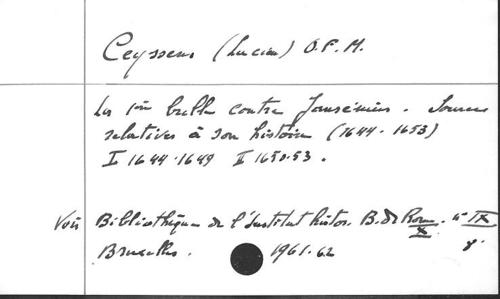 Ceyssens (Lucien) O.F.M.
La 1ère bulle contre Jansénius. Sources
relatives à son histoire (1644-1653)
I 1644-1649 II 1650-53.
Voir Bibliothèque de l'Institut histor. B. de Rome. n° IX
X
Bruxelles. 1961-62